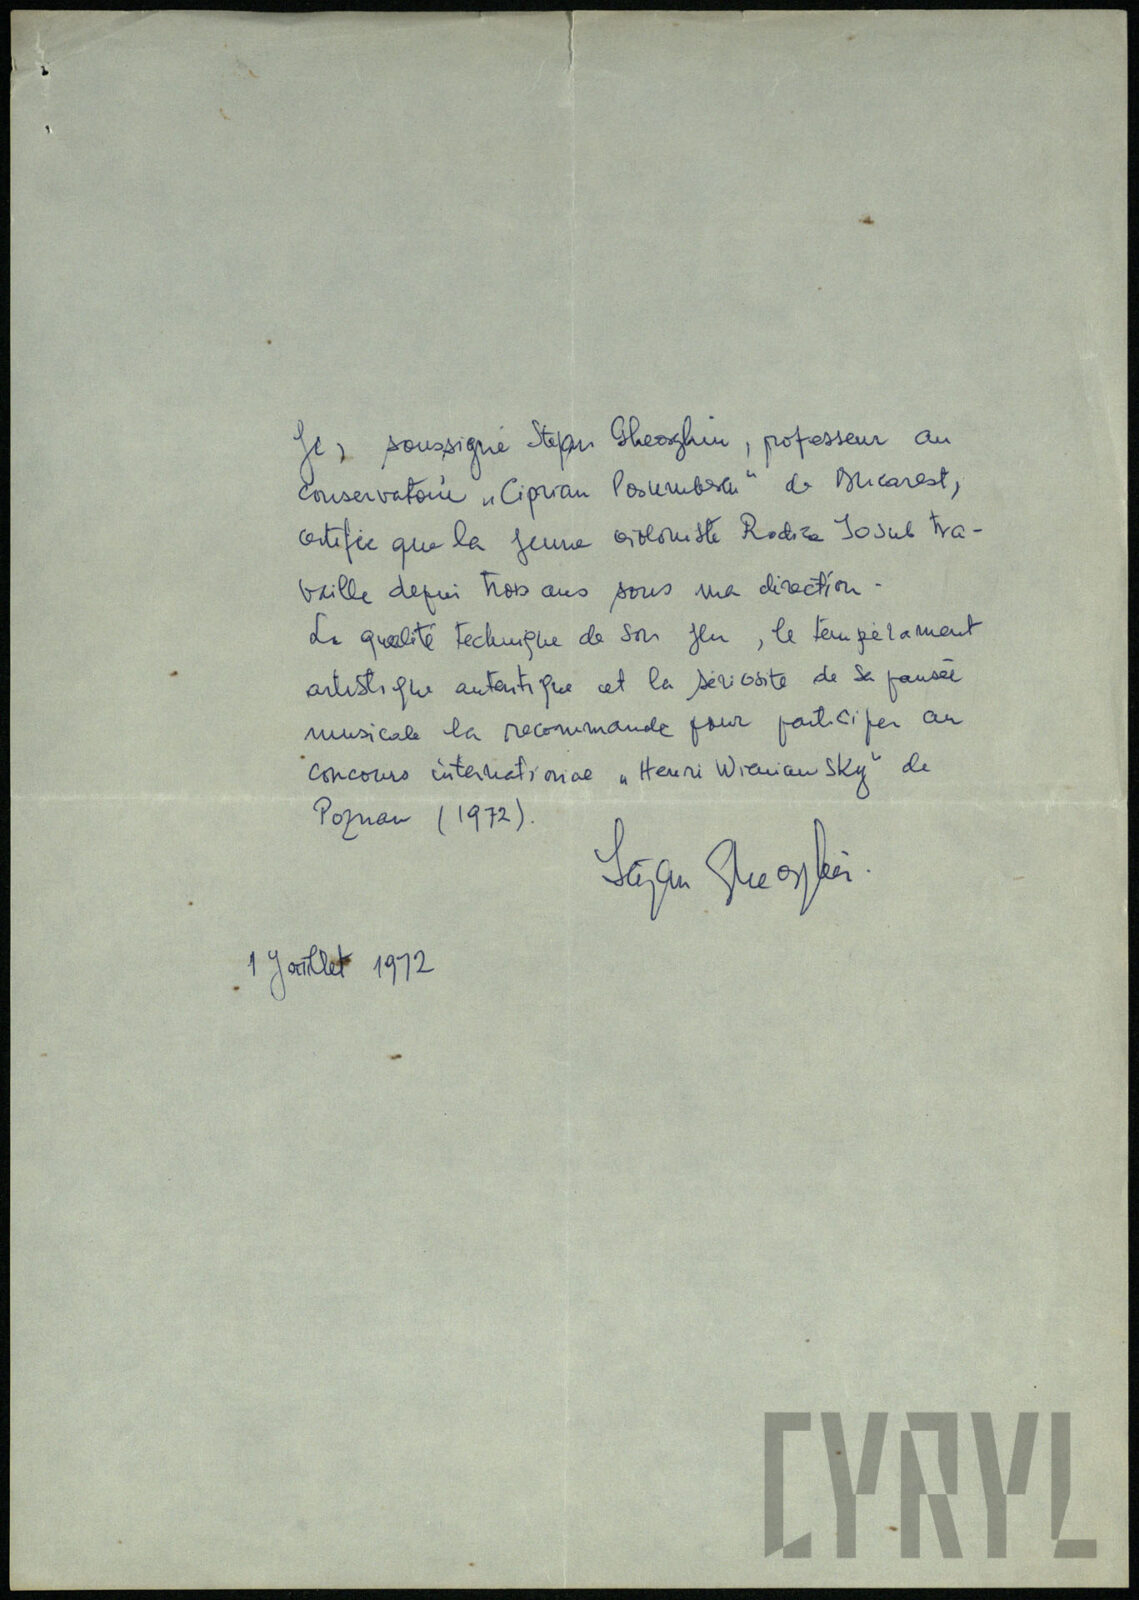 Je, soussigné Stefan Gheorghiu, professeur au
conservatoire „Ciprian Porumbescu" de Bucarest,
certifie que la jeune violoniste Rodica Iosub tra-
vaille depui trois ans sous ma direction.
La qualité technique de son jeu, le tempérament
artistique autentique et la sériosité de sa pensée
musicale la recommande pour participer au
concours international „Henri Wieniawsky" de
Poznan (1972).
Stefan Gheorghiu.
1 Juillet 1972
CYRYL